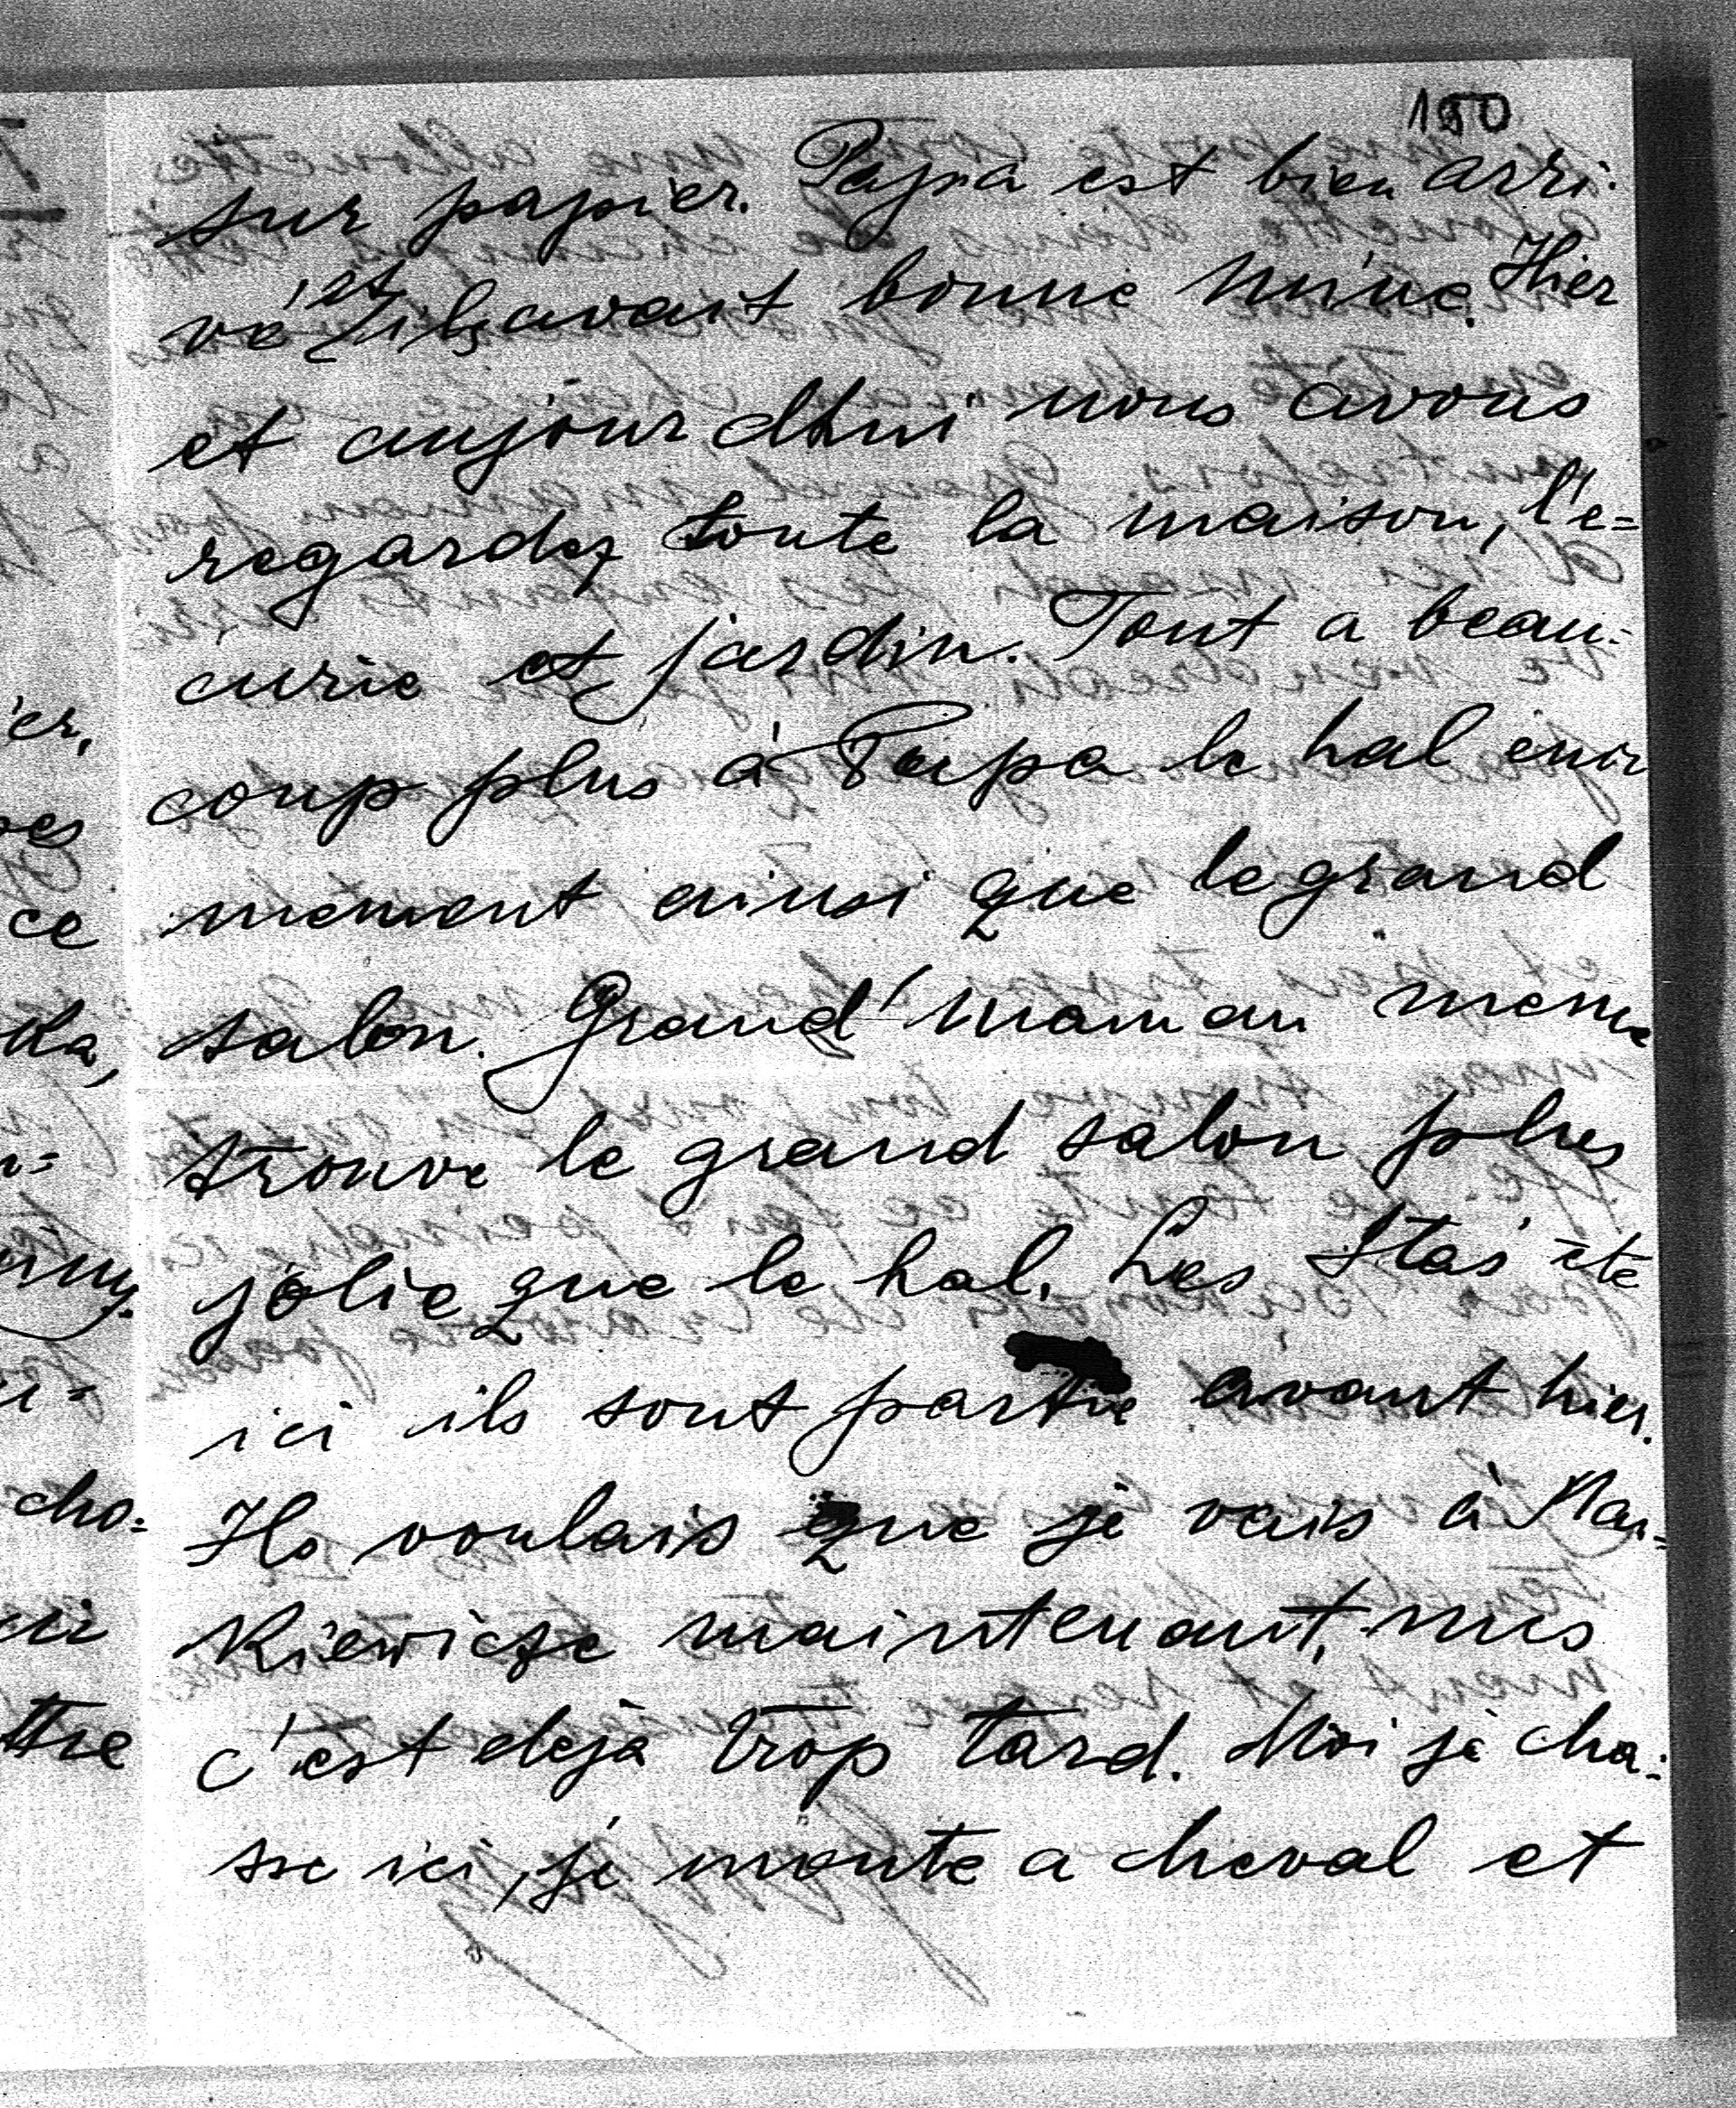 150
sur papier. Papa est bien arri-
vé et il avait bonne mine. Hier
et aujourdhui nous avons
regardez toute la maison, l'e=
curie et jardin. Tout a beau=
coup plus à Papa le hal enor
mement ainsi que le grand
salon. Grand'maman meme
trouve le grand salon plus
jolie que le hal. Les Staś été
ici ils sont partie avant hier.
Ils voulais que je vais à Man=
kiewicze maintenant, mes
c'est dejà trop tard. Moi je cha=
sse ici, je monte a cheval et
er,
ce
ka,
cho=
tre